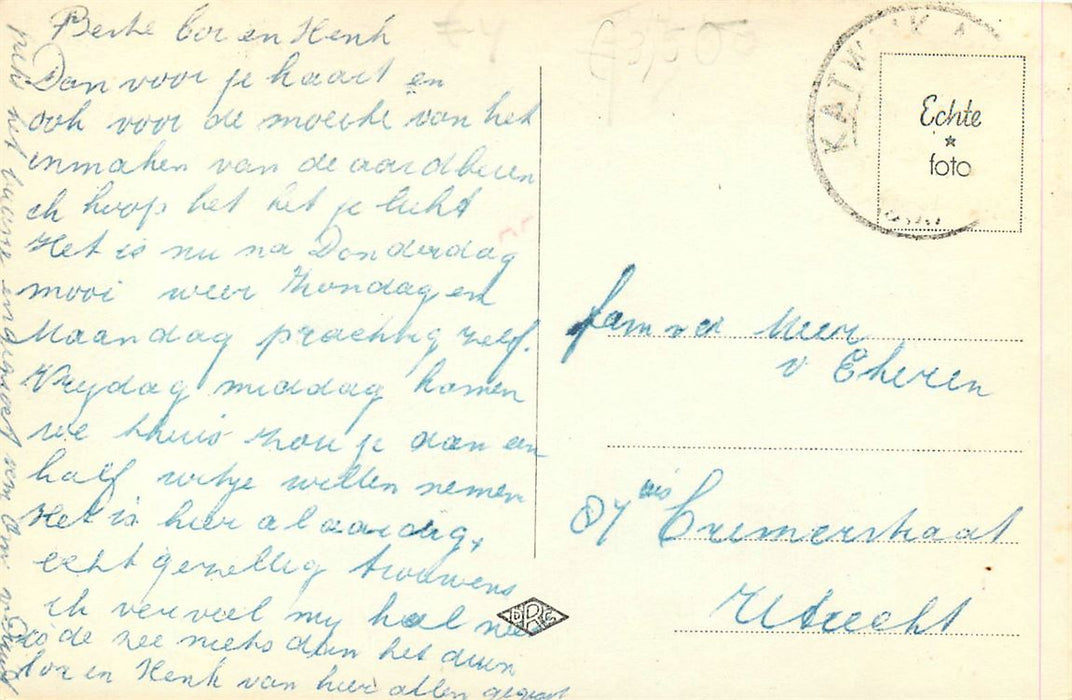 Beste Cor en Henk
Dan voor je kaart en
ook voor de moeite van het
inmaken van de aardbeien
ik hoop het het je lukt
Het is nu na Donderdag
mooi weer Zondag en
Maandag prachtig zelf.
Vrijdag middag komen
we thuis zou je dan een
half witje willen nemen
Het is hier a laardig,
echt gezellig trouwens
ik verveel mij hal nie
de zee niets dan het duin
Cor en Henk van hier allen gegroet
van Oma
£3,50
KATWIJK A
Echte
*
foto
fam v d Meer
v Ekeren
87 bis Cremerstraat
Utrecht